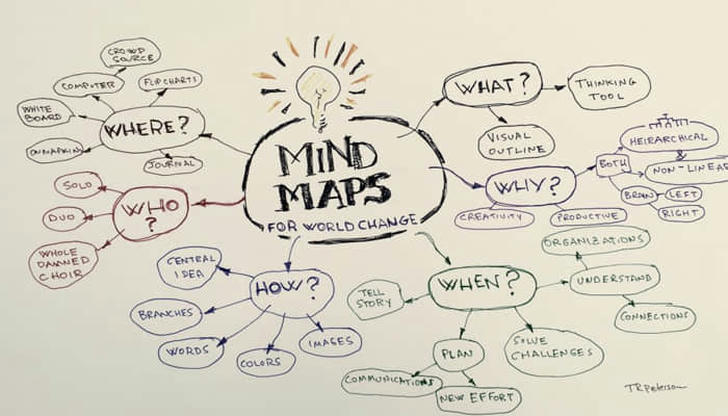 CROWD
SOURCE
COMPUTER
FLIPCHARTS
WHITE
BOARD
WHERE?
ON NAPKIN
JOURNAL
SOLO
DUO
WHOLE
DAMNED
CHOIR
WHO
?
MIND
MAPS
FOR WORLD CHANGE
WHAT?
THINKING
TOOL
VISUAL
OUTLINE
WHY?
CREATIVITY
PRODUCTIVE
BOTH
HEIRARCHICAL
&
NON-LINEAR
BRAIN
LEFT
RIGHT
HOW?
CENTRAL
IDEA
BRANCHES
WORDS
COLORS
IMAGES
WHEN?
TELL
STORY
PLAN
COMMUNICATIONS
NEW EFFORT
SOLVE
CHALLENGES
UNDERSTAND
ORGANIZATIONS
CONNECTIONS
TRPeterson